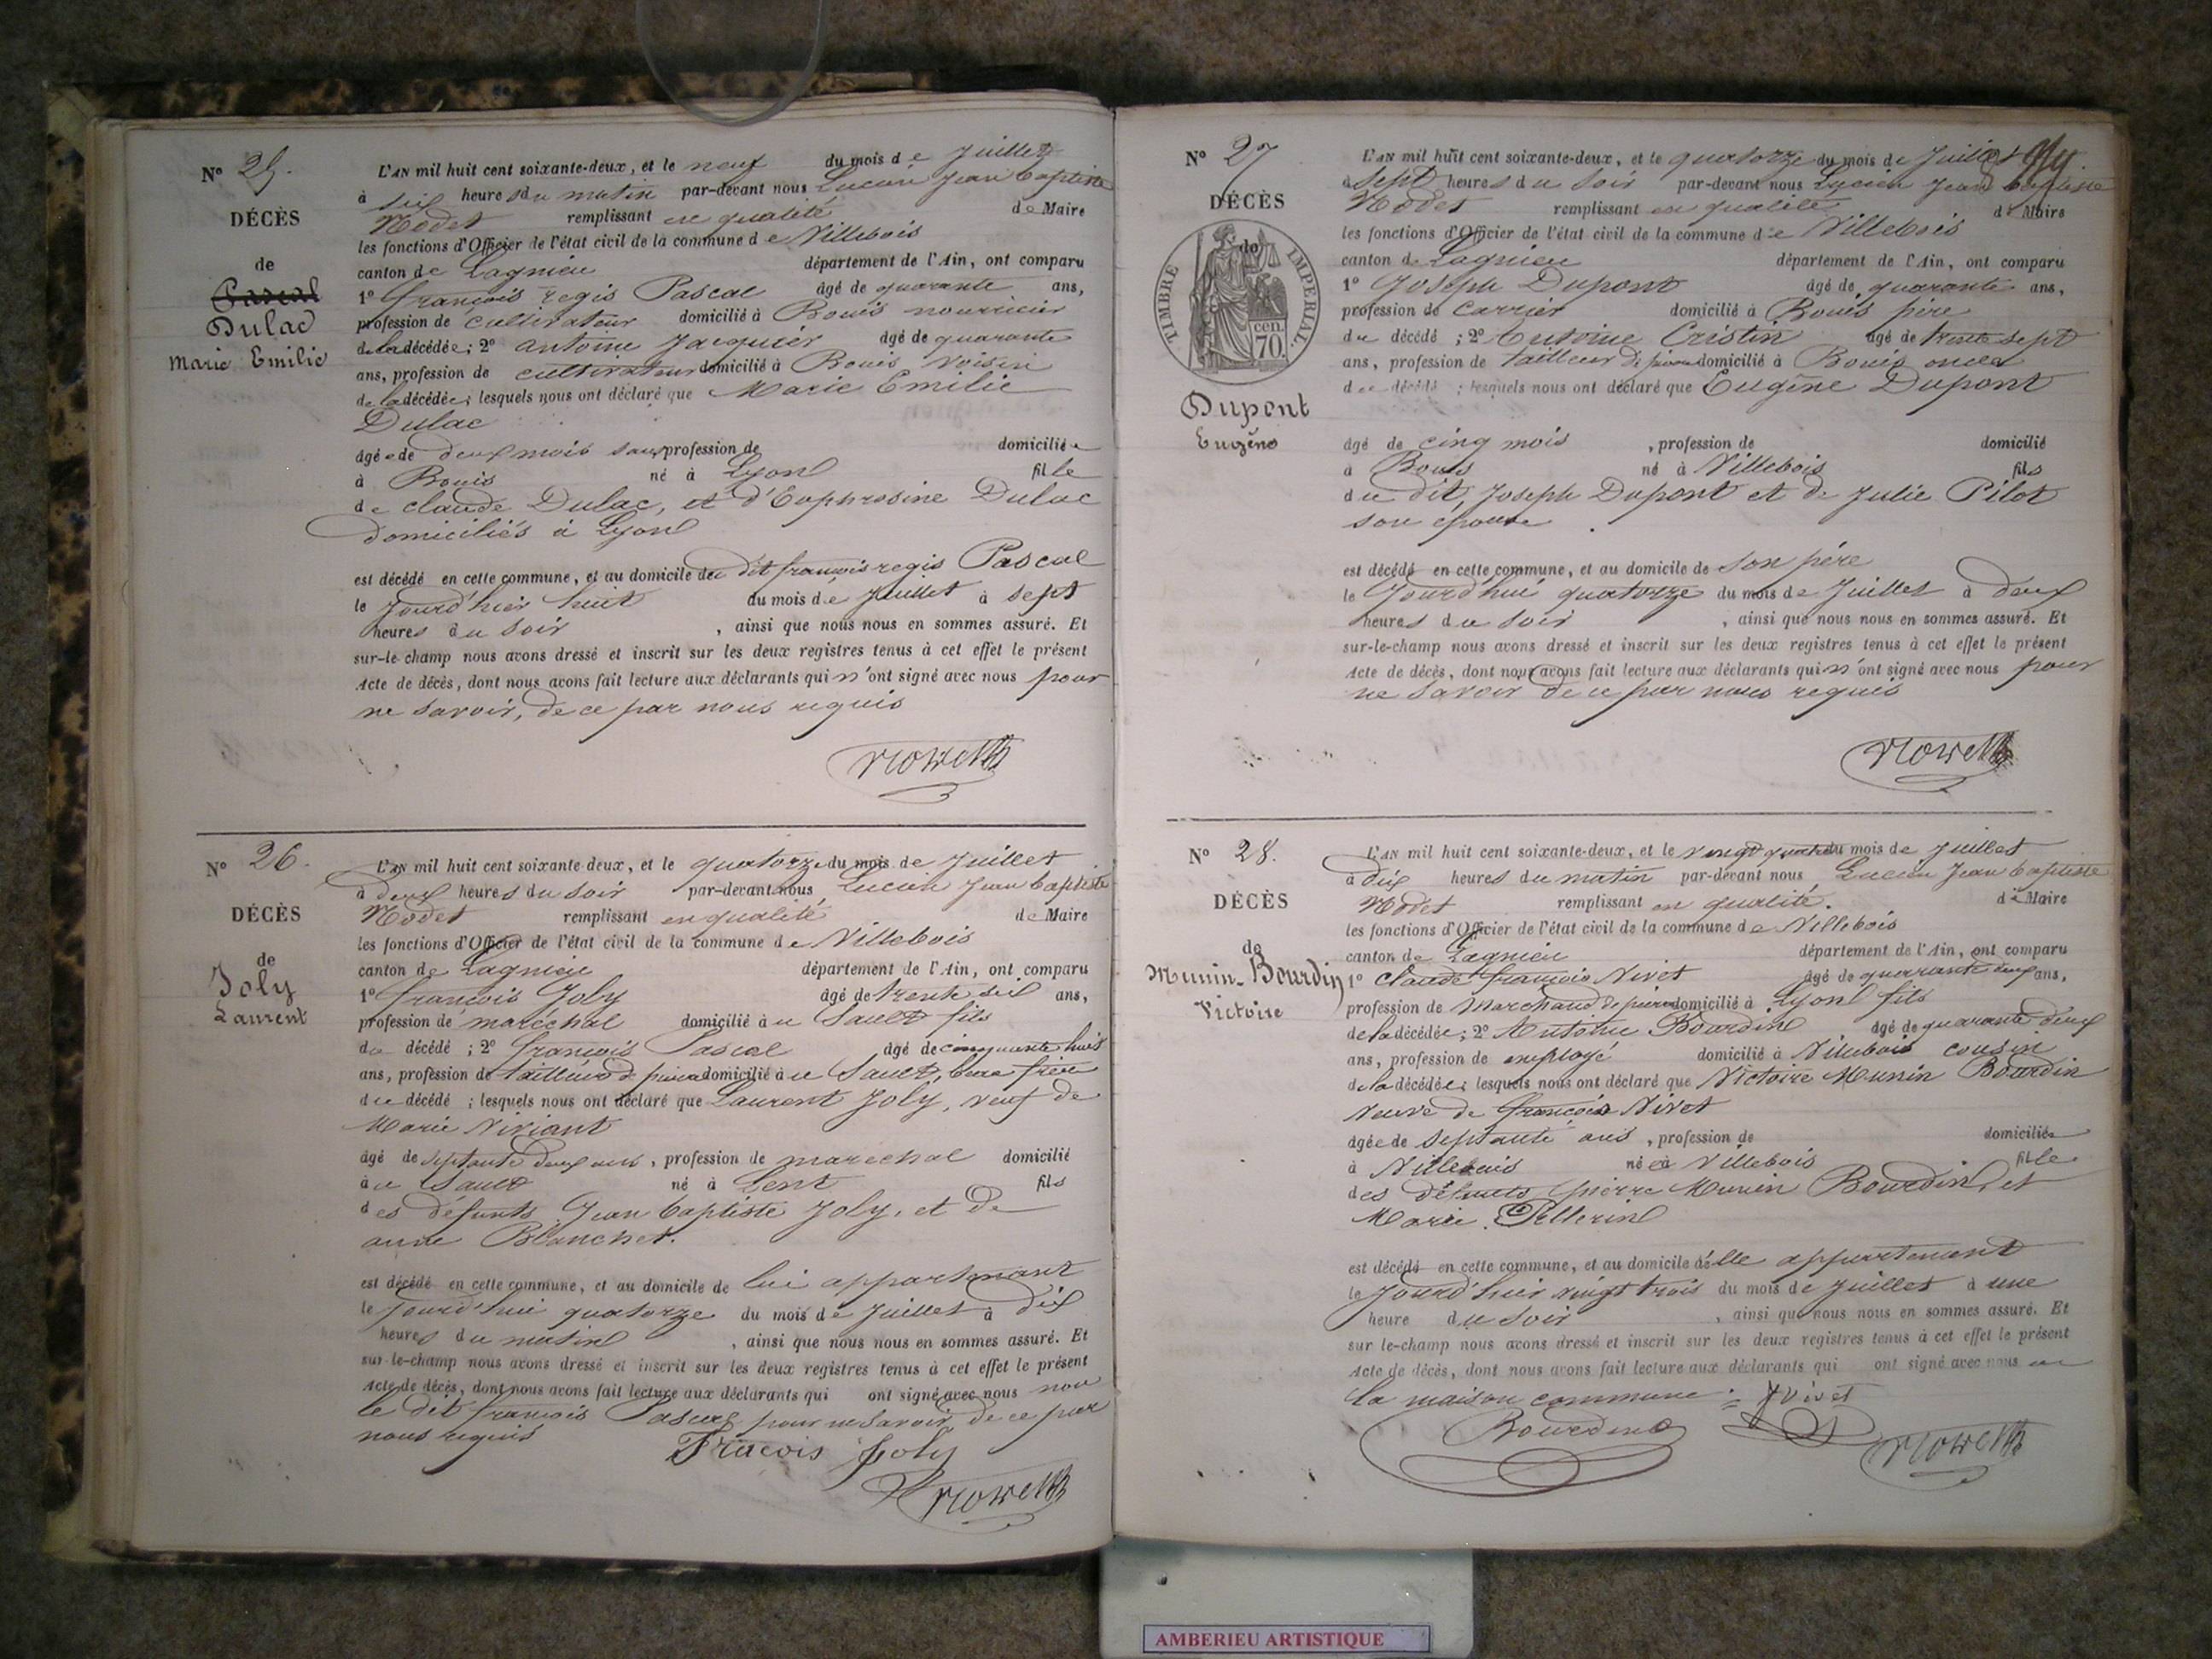 N° 25.
DÉCÈS
de
Pascal
Dulac
Marie Emilie
L'AN mil huit cent soixante-deux, et le neuf du mois de Juillet
à six heures du matin par-devant nous Lucien Jean Baptiste
Nodet remplissant en qualité de Maire
les fonctions d'Officier de l'état civil de la commune de Villebois
canton de Lagnieu département de l'Ain, ont comparu
1° françois regis Pascal âgé de quarante ans,
profession de cultivateur domicilié à Bouis nourricier
de la décédée; 2° antoine Jacquier âgé de quarante
ans, profession de cultivateur domicilié à Bouis voisin
de la décédée; lesquels nous ont déclaré que Marie Emilie
Dulac
âgée de deux mois sans profession de domiciliée
à Bouis né à Lyon fille
de claude Dulac, et d'Euphrosine Dulac
domiciliés à Lyon
est décédé en cette commune, et au domicile du dit françois regis Pascal
le Jourd'hier huit du mois de Juillet à sept
heures du soir , ainsi que nous nous en sommes assuré. Et
sur-le-champ nous avons dressé et inscrit sur les deux registres tenus à cet effet le présent
Acte de décès, dont nous avons fait lecture aux déclarants qui n'ont signé avec nous pour
ne savoir, de ce par nous requis
N° 26.
DÉCÈS
de
Joly
Laurent
L'AN mil huit cent soixante-deux, et le quatorze du mois de Juillet
à deux heures du soir par-devant nous Lucien Jean Baptiste
Nodet remplissant en qualité de Maire
les fonctions d'Officier de l'état civil de la commune de Villebois
canton de Lagnieu département de l'Ain, ont comparu
1° françois Joly âgé de trente six ans,
profession de maréchal domicilié à u Sault fils
du décédé ; 2° françois Pascal âgé de cinquante huit
ans, profession de tailleur de pierre domicilié à u Sault, beau frère
du décédé ; lesquels nous ont déclaré que Laurent Joly, veuf de
Marie Viviant
âgé de septante deux ans, profession de marechal domicilié
à u Sault né à Lent fils
des défunts Jean baptiste Joly, et de
anne Blanchet.
est décédé en cette commune, et au domicile de lui appartenant
le Jourd'hui quatorze du mois de Juillet à dix
heures du matin , ainsi que nous nous en sommes assuré. Et
sur-le-champ nous avons dressé et inscrit sur les deux registres tenus à cet effet le présent
Acte de décès, dont nous avons fait lecture aux déclarants qui ont signé avec nous non
le dit françois Pascal pour ne savoir, de ce par
nous requis
Fracois Joly
N° 27
DÉCÈS
de
TIMBRE IMPERIAL
70 cen.
Dupont
Eugène
L'AN mil huit cent soixante-deux, et le quatorze du mois de Juillet
à sept heures du soir par-devant nous Lucien Jean baptiste
Nodet remplissant en qualité de Maire
les fonctions d'Officier de l'état civil de la commune de Villebois
canton de Lagnieu département de l'Ain, ont comparu
1° Joseph Dupont âgé de quarante ans,
profession de carrier domicilié à Bouis père
du décédé ; 2° Antoine Cristin âgé de trente sept
ans, profession de tailleur de pierre domicilié à Bouis oncle
du décédé ; lesquels nous ont déclaré que Eugène Dupont
âgé de cinq mois , profession de domicilié
à Bouis né à Villebois fils
du dit, Joseph Dupont et de Julie Pilot
son épouse
est décédé en cette commune, et au domicile de son père
le Jourd'hui quatorze du mois de Juillet à deux
heures du soir , ainsi que nous nous en sommes assuré. Et
sur-le-champ nous avons dressé et inscrit sur les deux registres tenus à cet effet le présent
Acte de décès, dont nous avons fait lecture aux déclarants qui n'ont signé avec nous pour
ne savoir de ce par nous requis
N° 28.
DÉCÈS
de
Munin-Bourdin
Victoire
L'AN mil huit cent soixante-deux, et le vingt quatre du mois de Juillet
à dix heures du matin par-devant nous Lucien Jean baptiste
Nodet remplissant en qualité. de Maire
les fonctions d'Officier de l'état civil de la commune de Villebois
canton de Lagnieu département de l'Ain, ont comparu
1° claude françois Nivet âgé de quarante deux ans,
profession de Marchand de pierre domicilié à Lyon fils
de la décédée; 2° Antoine Bourdin âgé de quarante deux
ans, profession de employé domicilié à Villebois cousin
de la décédée; lesquels nous ont déclaré que Victoire Munin Bourdin
veuve de françois Nivet
âgée de septante ans , profession de domiciliée
à Villebois née à Villebois fille
des défunts pierre Munin Bourdin, et
Marie Pellerin
est décédé en cette commune, et au domicile d'elle appartenant
le Jourd'hier vingt trois du mois de Juillet à une
heure du soir , ainsi que nous nous en sommes assuré. Et
sur le-champ nous avons dressé et inscrit sur les deux registres tenus à cet effet le présent
Acte de décès, dont nous avons fait lecture aux déclarants qui ont signé avec nous en
la maison commune.
Nivet
Bourdin
AMBERIEU ARTISTIQUE